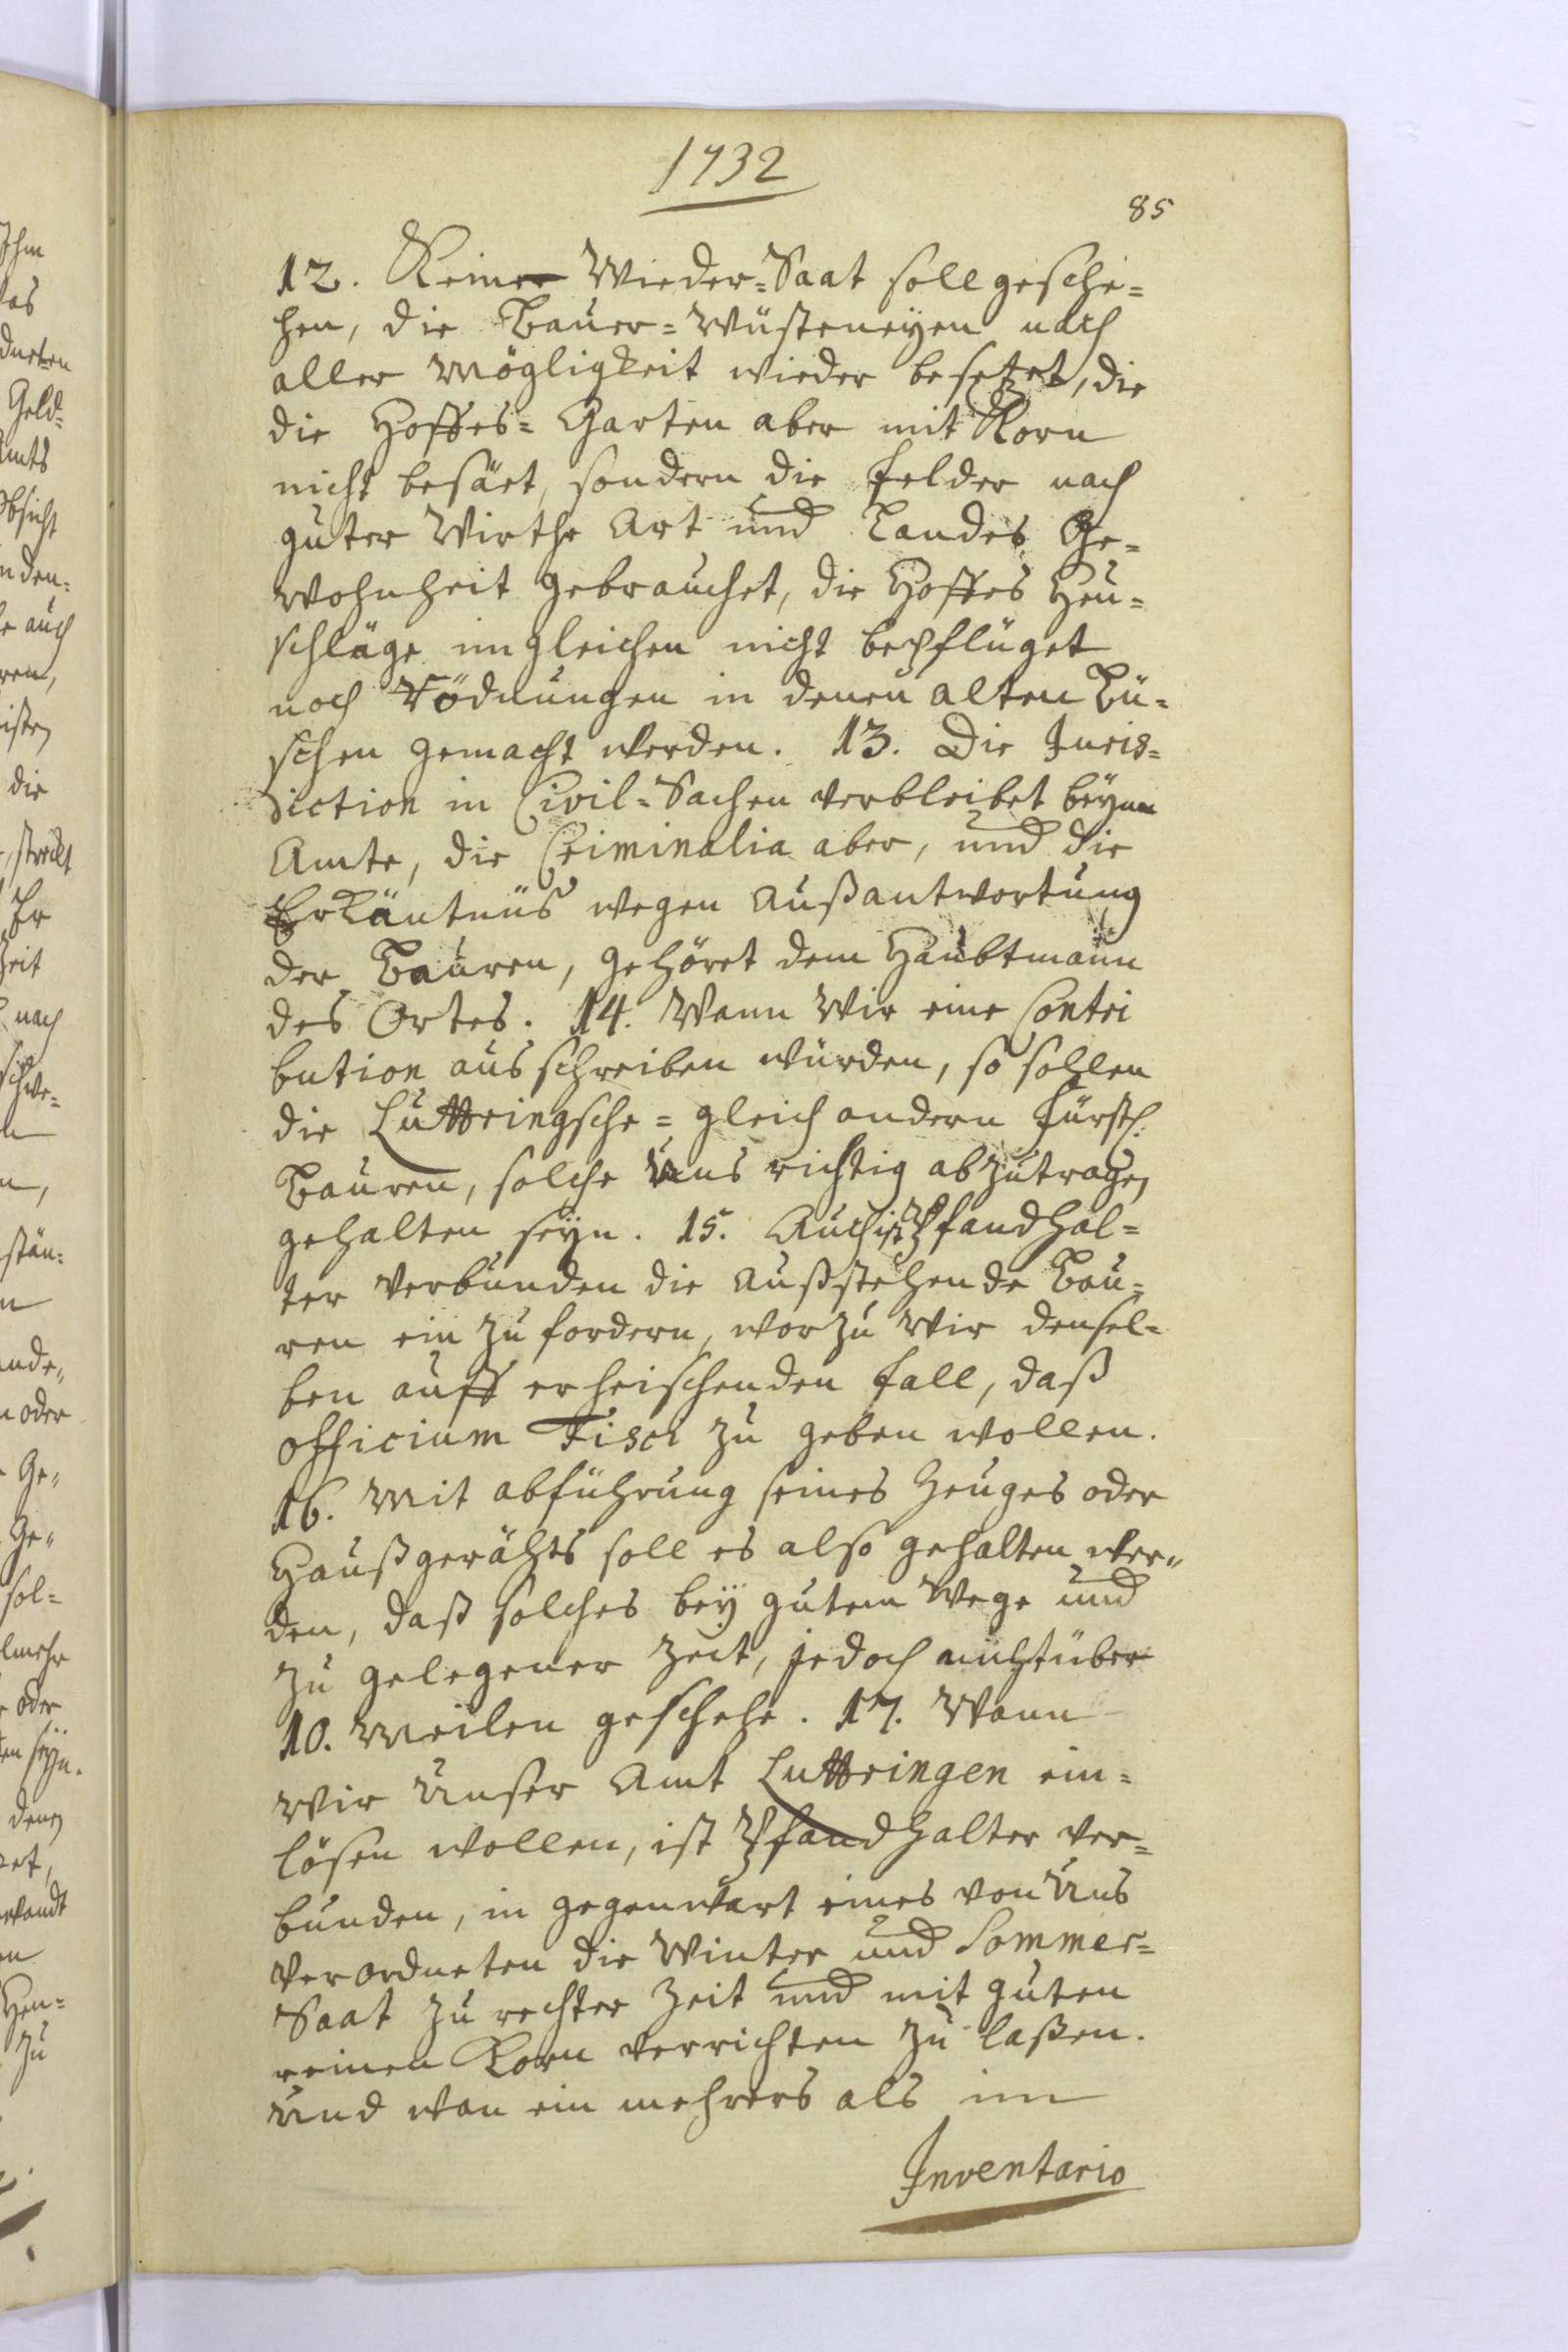 1732
85
12. Keine Wieder-Saat soll gesche=
hen, die Bauer=Wüsteneyen nach
aller Mögligkeit wieder besetzet, die
die Hoffes= Garten aber mit Korn
nicht besäet, sondern die Felder nach
guter Wirthe Art und Landes Ge=
wohnheit gebrauchet, die Hoffes Heu=
schläge imgleichen nicht bepflüget
noch Rödnungen in denen alten Bü=
schen gemacht werden. 13. Die Juris=
diction in Civil=Sachen verbleibet beym
Amte, die Criminalia aber, und die
Erkäntnüs wegen Außantwortung
der Bauren, gehöret dem Haubtmann
des Ortes. 14. Wann Wir eine Contri
bution ausschreiben würden, so sollen
die Luttringsche= gleich andern Fürstl.
Bauren, solche Uns richtig abzutragen
gehalten seyn. 15. Auch ist Pfandhal=
ter verbunden die außstehende Bau=
ren ein zu fordern, worzu Wir densel=
ben auff erheischenden Fall, daß
officium Fisci zu geben wollen.
16. Mit abführung seines Zeuges oder
Haußgerähts soll es also gehalten wer=
den, daß solches bey gutem Wege und
zu gelegener Zeit, jedoch nicht über
10. Meilen geschehe. 17. Wann
Wir Unser Amt Luttringen ein=
lösen wollen, ist Pfandhalter ver=
bunden, in gegenwart eines von Uns
verordneten die Winter und Sommer=
Saat zu rechter Zeit und mit guten
reinen Korn verrichten zu laßen.
Und wan ein mehrers als im
Inventario